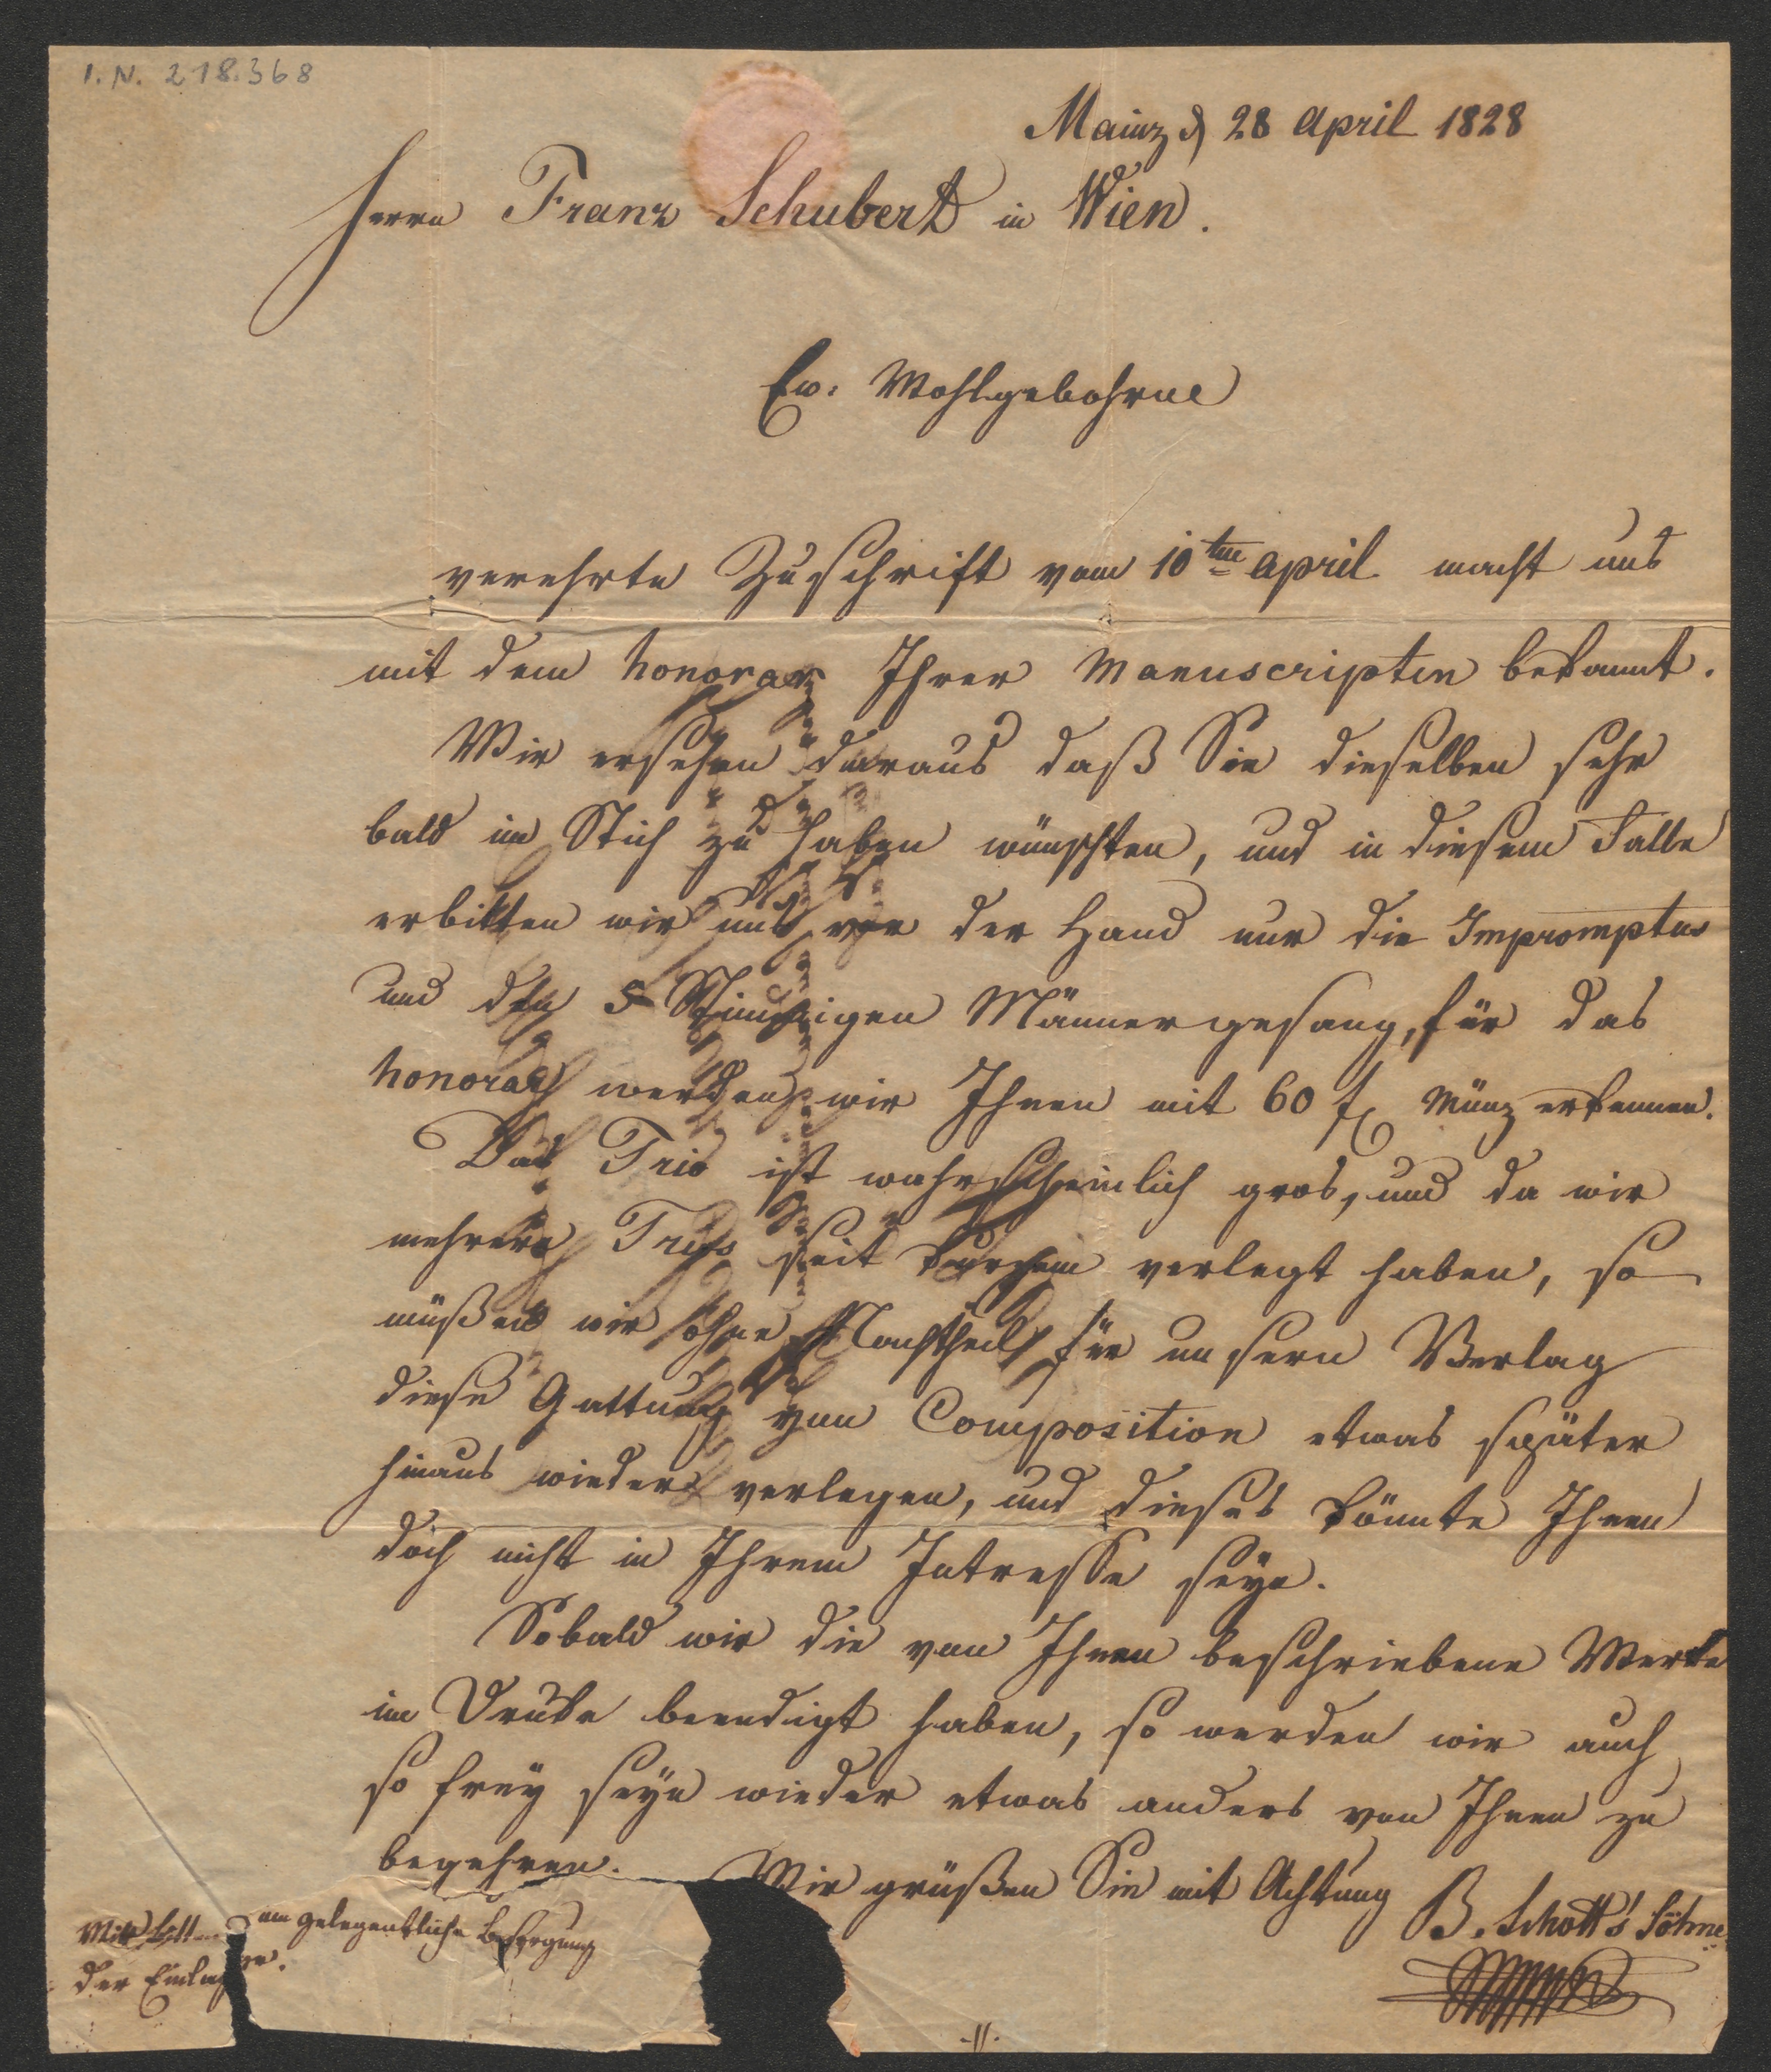 I. N. 218.368
Mainz d 28 April 1828
Herrn Franz Schubert in Wien.
Ew: Wohlgebohrne
verehrte Zuschrift vom 10ten April macht uns
mit dem honorar Ihrer Manuscripten bekannt.
Wir ersehen daraus daß Sie dieselben sehr
bald im Stich zu haben wünschten, und in diesem Falle
erbitten wir uns vor der Hand nur die Impromptus
und den 5 Stimmigen Männergesang, für das
honorar werden wir Ihnen mit 60 f Münz erkennen.
Das Trio ist wahrscheinlich gros, und da wir
mehrere Trios seit kurzem verlegt haben, so
müßen wir ohne Nachtheil für unsern Verlag
diese Gattung von Composition etwas später
hinaus wieder verlegen, und dieses könnte Ihnen
doch nicht in Ihrem Intresse seyn.
Sobald wir die von Ihnen beschriebene Werke
im Drucke beendigt haben, so werden wir auch
so frey seyn wieder etwas anders von Ihnen zu
begehren. Wir grüßen Sie mit Achtung B. Schott's Söhne
Mit bitten um gelegentliche Besorgung
der Einlage.